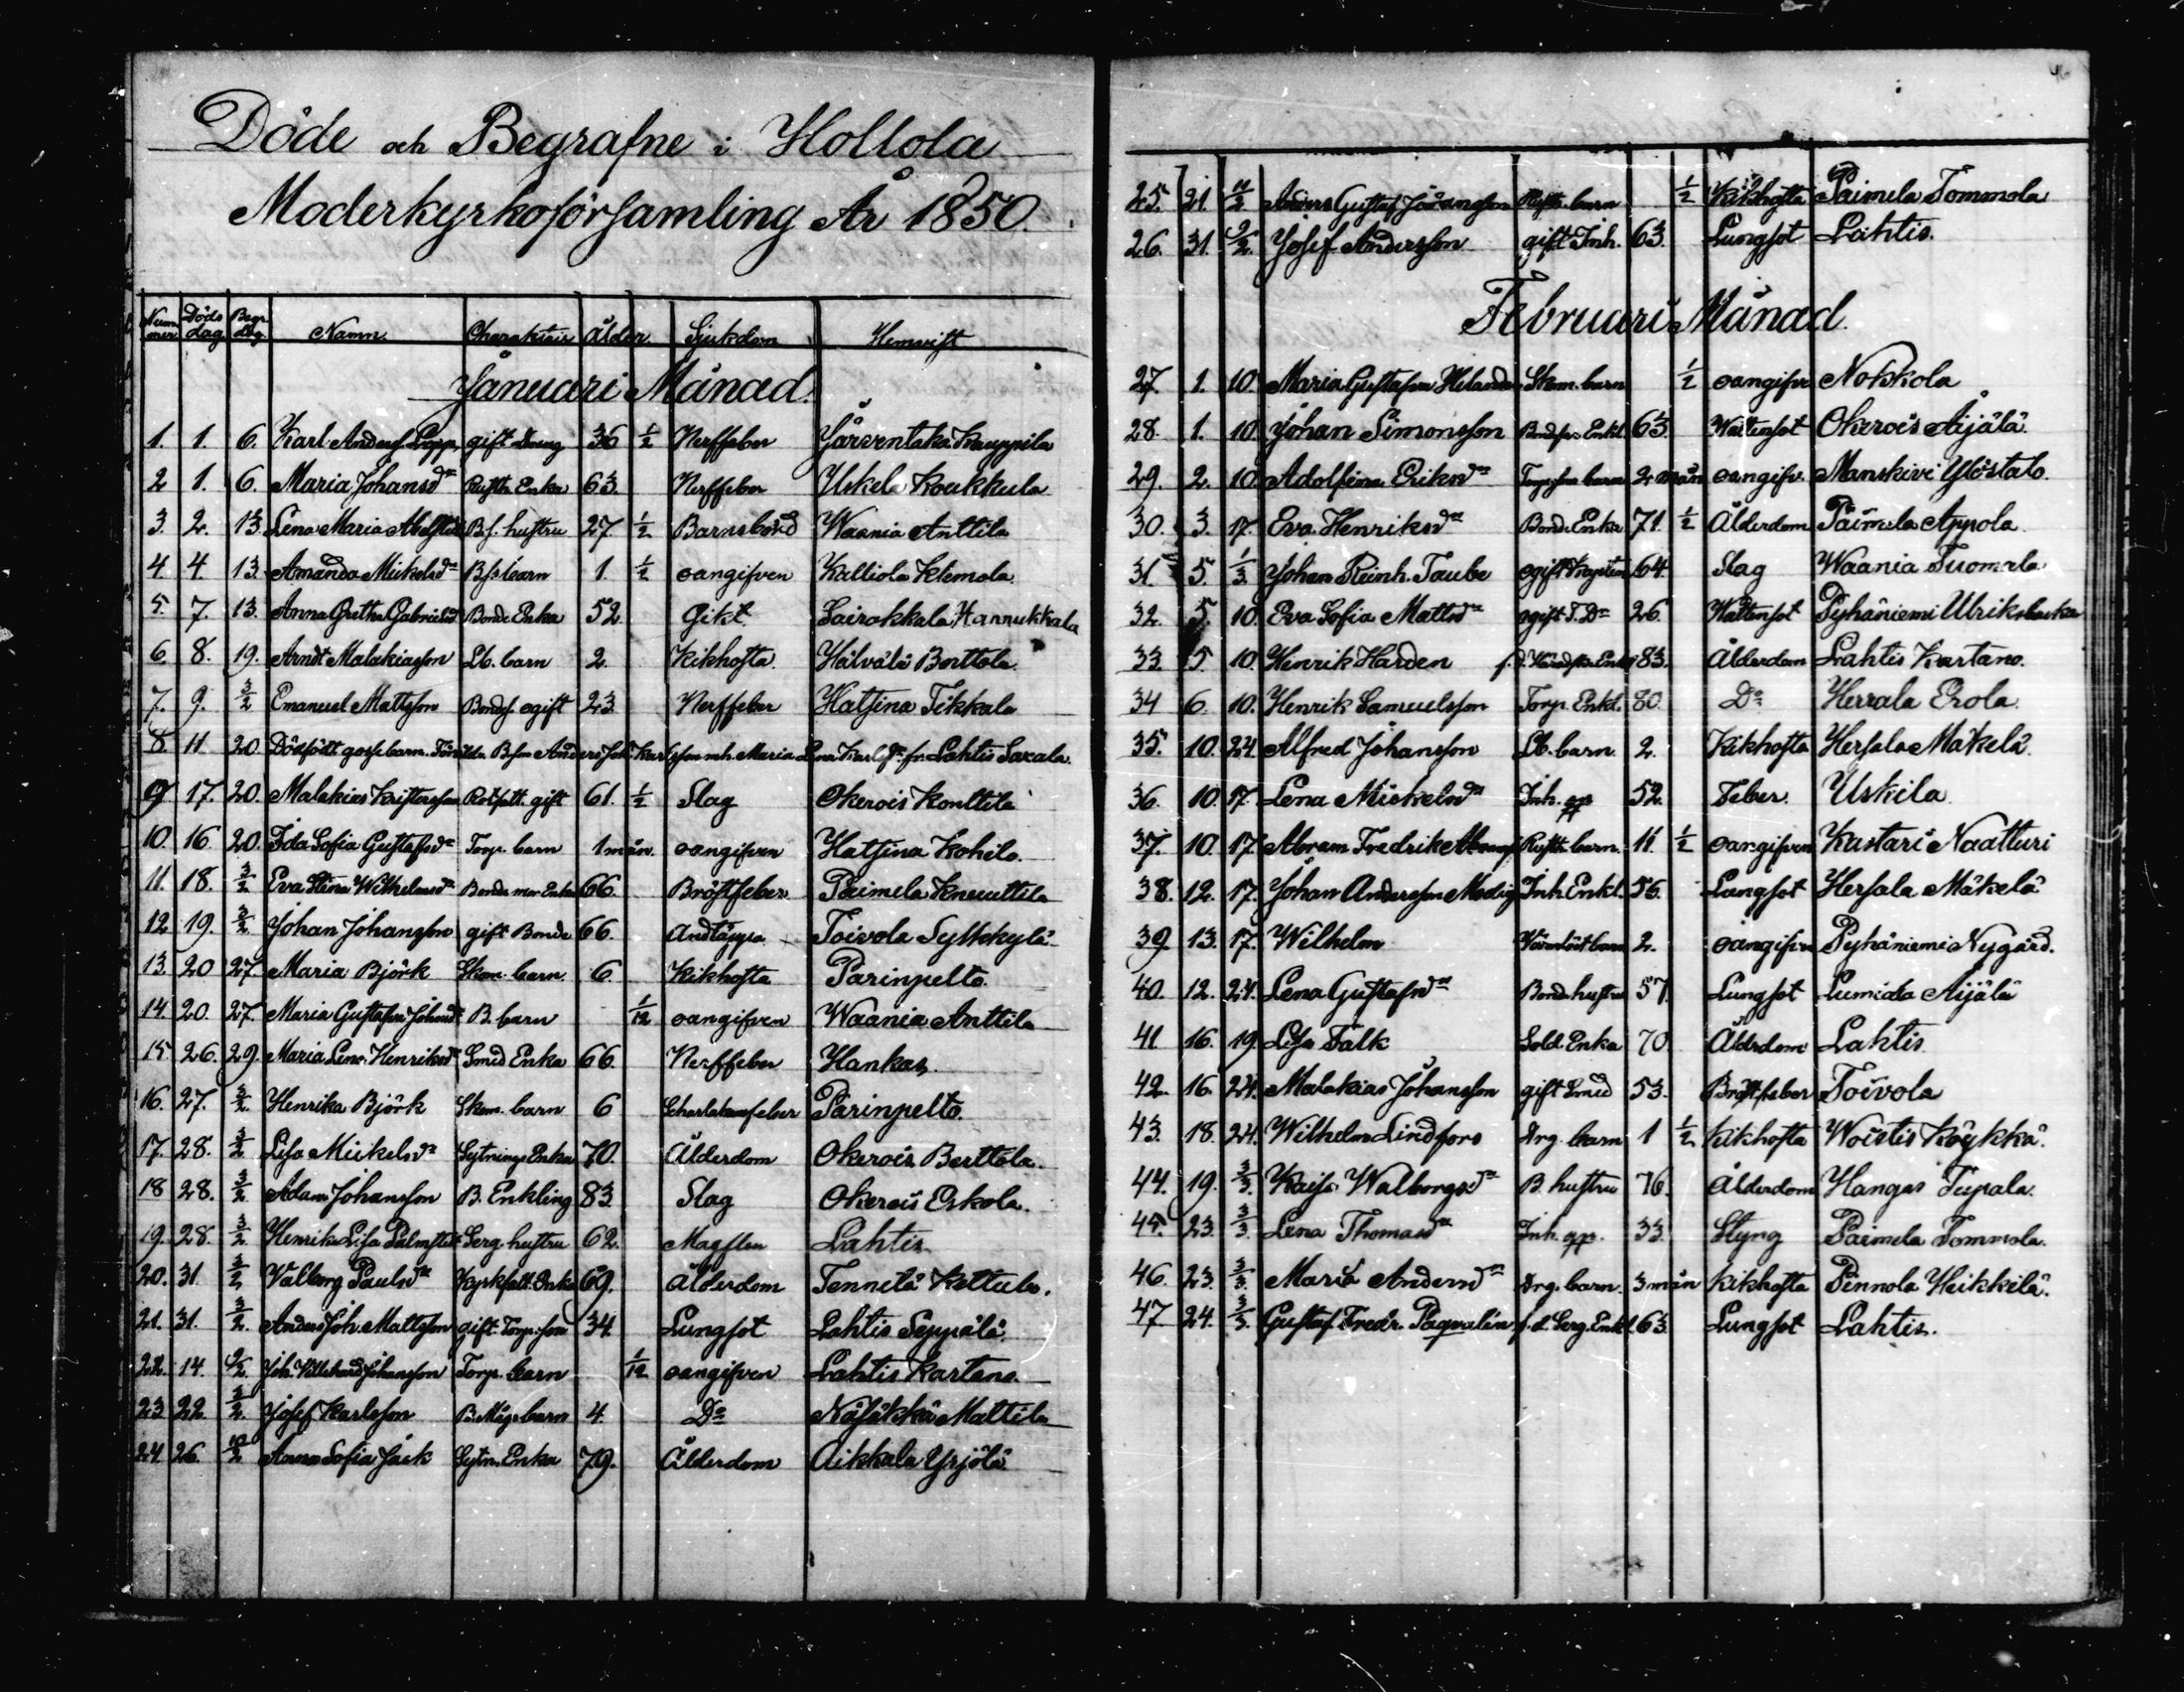 Döde och Begrafne i Hollola
Moderkyrkoförsamling År 1850.
Nummer Döds dag Begr. dag Namn. Charakteir Ålder Sjukdom Hemvist
Januari Månad.
1. 1. 6. Karl Anders. gift Dreng 36 1/2 Nerffeber Järventaka Kauppila
2 1. 6. Maria Johansd:r Rusth. Enka 63. Nerffeber Uskela Koukkula
3. 2. 13. Lena Maria B.s. hustru 27. 1/2 Barnsbörd Waania Anttila
4. 4. 13. Amanda Mickelsd:r B.s. barn 1. 1/2 oangifven Kalliola Klemola
5. 7. 13. Anna Gretha Gabrielsd. Bonde Enka 52. Gikt. Sairakkala Hannukkala
6. 8. 19. Arndt Malakiasson Lb. barn 2. Kikhosta. Hälvälä Berttola.
7. 9. 3/2 Emanuel Mattsson Bondes. ogift 23 Nerffeber Hatsina Tikkala
8 11. 20 Dödfödt gossebarn. Föräldr. B.son Anders Joh. Karlsson och Maria Lena Karlsd:r fr. Lahtis Saxala.
9 17. 20. Malakias Kristersson Rotfatt. gift 61. 1/2 Slag Okerois Konttila
10. 16. 20. Ida Sofia Gustafsd:r Torp. barn 1 mån. oangifven Hatsina Kohilo.
11. 18. 3/2 Eva Stina Wilhelmsd:r Bonde mor Enka 66. Bröstfeber Paimela Kneuttila
12 19. 3/2 Johan Johansson gift Bonde 66. Andtäppa Toivola Syltikylä
13. 20 27. Maria Björk Skom. barn. 6. Kikhosta Parinpelto.
14. 20. 27. Maria Gustafva Johansd:r B. barn 1/12 oangifven Waania Anttila
15 26. 29. Maria Lena Henriksd:r Smed Enka 66. Nerffeber Hankas.
16. 27. 3/2. Henrika Björk Skom. barn 6 Scharlakansfeber Parinpelto.
17. 28. 3/2 Lisa Mickelsd:r Sytnings Enka 70. Ålderdom Okerois Berttola.
18 28. 3/2 Adam Johansson B. Enkling 83 Slag Okerois Erkola.
19. 28. 3/2 Henrika Lisa Palmstedt Serg. hustru 62. Magplen Lahtis
20. 31 3/2 Valborg Paulsd:r Kyrkfatt. Enka 69. Ålderdom Tennilä Kettula.
21. 31. 3/2. Anders Joh. Mattsson gift. Torp. son 34. Lungsot Lahtis Seppälä
22. 14. Joh. Killehard Johansson Torp. barn 1/12 oangifven Lahtis Kartano.
23 22 3/2. Josef Karlsson B. Mågs barn 4. D:o Nösäkkä Mattila
24. 26. 10/2 Anna Sofia Jack Sytn. Enka 79. Ålderdom Aikkala Yrjölä
25. 21. Anders Gustaf Johansson Rusth. barn 1/2 Kikhosta Paimela Tommola
26. 31. 3/2. Josef Andersson gift Inh. 63. Lungsot Lahtis.
Februari Månad.
27. 1. 10. Maria Gustafva Helander Skom. barn 1/2 oangifven Nokkola
28. 1. 10. Johan Simonsson Bondes. Enkl. 63. Wattensot Okerois Äijälä.
29. 2. 10. Adolfina Eriksd:r Torp. son barn 2 mån oangifv. Manskivi Ylöstalo.
30. 3. 17. Eva Henriksd:r Bonde. Enka 71. 1/2 Ålderdom Paimela Appola.
31. 5. 1/3 Johan Reinh. Taube ogift Kapiten 64. Slag Waania Tuomela
32. 5. 10. Eva Sofia Mattsd:r ogift T. D:r 26. Wattensot Pyhäniemi Ulriksbacka
33 5 10. Henrik Harden Enkl. 83. Ålderdom Lahtis Kartano.
34 6. 10. Henrik Samuelsson Torp. Enkl. 80. D:o Herrala Erola.
35. 10. 24. Alfred Johansson Lb. barn. 2. Kikhosta Hersala Mäkelä.
36. 10. 17. Lena Mickelsd:r Inh. gp 52. Feber. Uskila.
37. 10. 17. Abram Fredrik Rusth. barn. 11. 1/2 oangifven Kastari Naatturi
38. 12. 17. Johan Andersson Modig Inh. Enkl. 56. Lungsot Hersala Mäkelä
39. 13. 17. Wilhelm Värnlöst barn 2. oangifven Pyhäniemi Nygård.
40. 12. 24. Lena Gustafsd:r Bonde hustru 57. Lungsot Äijälä
41 16. 19. Lisa Falk Sold. Enka 70. Ålderdom Lahtis
42. 16. 24. Malakias Johansson gift Smed 53. Bröstfeber Toivola
43. 18. 24. Wilhelm Lindfors Drg. barn 1 1/2 kikhosta Woistis Köykkä.
44. 19. 3/3. Kaisa Walborgsd:r B. hustru 76. Ålderdom Hangas Tupala.
45. 23. 3/3. Lena Thomasd:r Inh. gp. 33. Styng Paimela Tommola.
46. 23. 3/3 Maria Andersd:r Drg. barn. 3 mån kikhosta Pennola Heikkilä.
47 24. 3/3. Gustaf Fredr. Paqvalin f.d. Serg. Enkl. 63. Lungsot Lahtis.